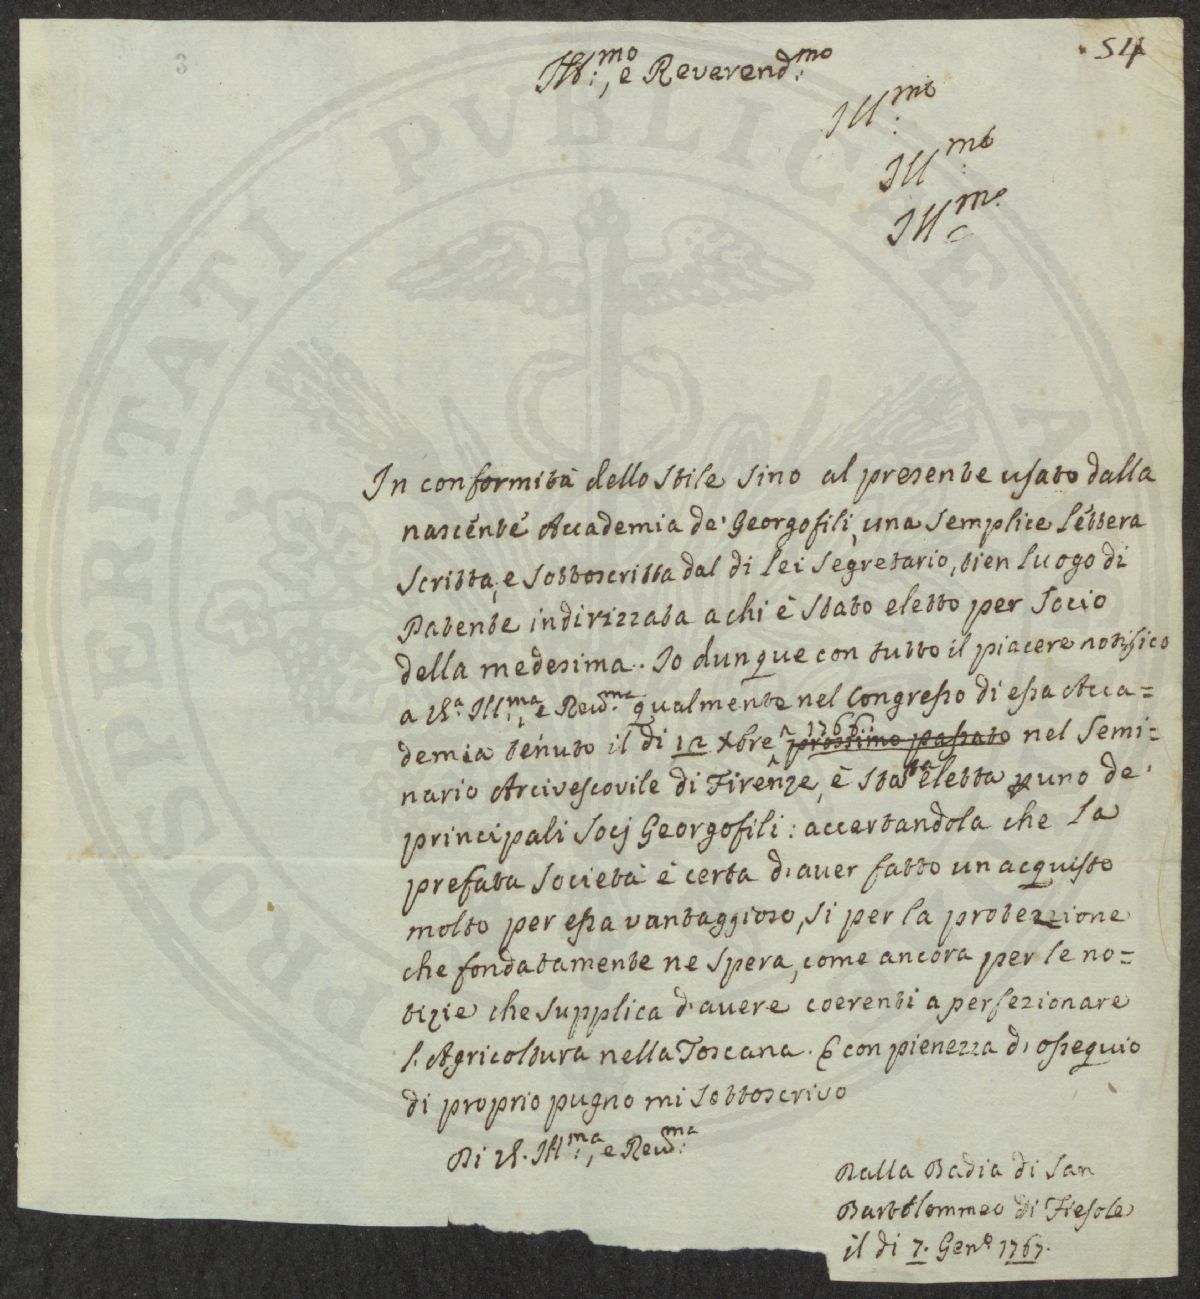 54
3
Ill:mo, e Reverend:mo
Ill:mo
Ill:mo
Ill:mo
In conformità dello stile sino al presente usato dalla
nascente Accademia de' Georgofili, una semplice lettera
scritta, e sottoscritta dal di lei Segretario, tien luogo di
Patente indirizzata a chi è stato eletto per Socio
della medesima. Io dunque con tutto il piacere notifico
a V.a Ill:ma, e Revd:ma qualmente nel Congresso di essa Acca=
demia tenuto il dì 12 Xbre 1766: prossimo passato nel Semi=
nario Arcivescovile di Firenze, è stata eletta p uno de'
principali Socj Georgofili: accertandola che la
prefata Società è certa d'aver fatto un acquisto
molto per essa vantaggioso, sì per la protezzione
che fondatamente ne spera, come ancora per le no=
tizie che supplica d'avere coerenti a perfezionare
l'Agricoltura nella Toscana. E con pienezza d'ossequio
di proprio pugno mi sottoscrivo
Di V. Ill:ma, e Revd:ma
Dalla Badia di San
Bartolommeo di Fiesole
il dì 7. Gen.o 1767.
PROSPERITATI PUBLICAE A